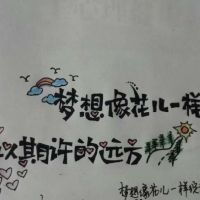 梦想像花儿一样
以期许的远方
梦想象花儿一样绽